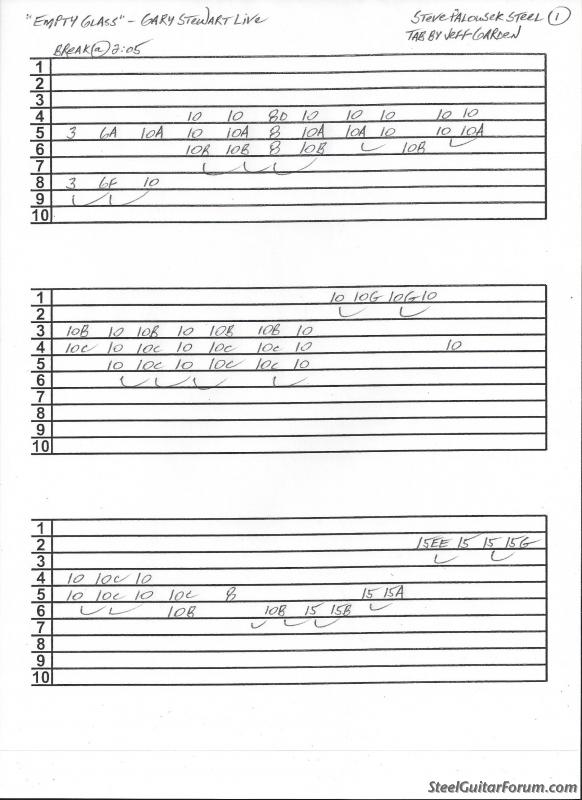 "EMPTY GLASS" - GARY STEWART LIVE
STEVE PALOUSEK STEEL 1
TAB BY JEFF GARDEN
BREAK @ 2:05
1
2
3
4 10 10 8D 10 10 10 10 10
5 3 6A 10A 10 10A 8 10A 10A 10 10 10A
6 10B 10B 8 10B 10B
7
8 3 6F 10
9
10
1 10 10G 10G 10
2
3 10B 10 10B 10 10B 10B 10
4 10C 10 10C 10 10C 10C 10 10
5 10 10C 10 10C 10C 10
6
7
8
9
10
1
2 15EE 15 15 15G
3
4 10 10C 10
5 10 10C 10 10C 8 15 15A
6 10B 10B 15 15B
7
8
9
10
SteelGuitarForum.com